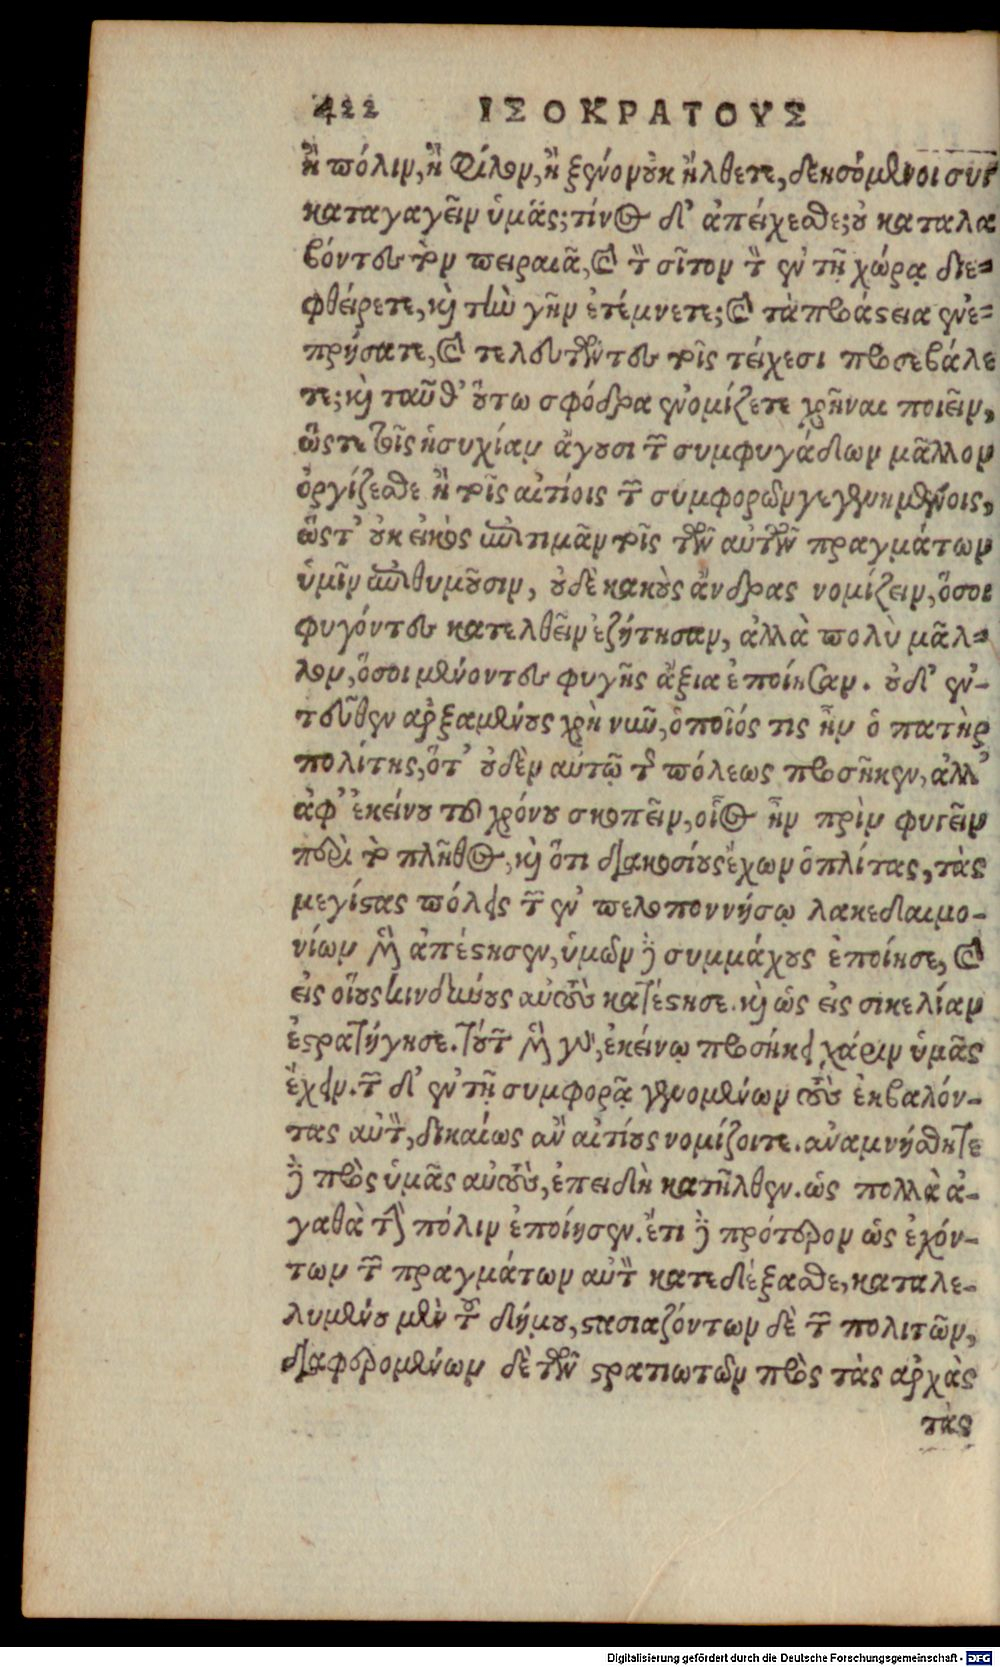 422 ΙΣΟΚΡΑΤΟΥΣ
ἢ πόλιν, ἢ φίλον, ἢ ξένον οὐκ ἤλθετε, δεησόμενοι συγ
καταγαγεῖν ὑμᾶς; τίνος δ' ἀπέιχεσθε; οὐ καταλα
βόντες τὸν πειραιᾶ, καὶ τὸν σῖτον τὸν ἐν τῇ χώρᾳ διε-
φθείρετε, καὶ τὴν γῆν ἐτέμνετε; καὶ τὰ προάστεια ἐνε-
πρήσατε, καὶ τελευτῶντες τοῖς τείχεσι προσεβάλε
τε; καὶ ταῦθ' οὕτω σφόδρα ἐνομίζετε χρῆναι ποιεῖν,
ὥστε τοῖς ἡσυχίαν ἄγουσι τῶν συμφυγάδων μᾶλλον
ὀργίζεσθε ἢ τοῖς αἰτίοις τῶν συμφορῶν γεγενημένοις,
ὥστ' οὐκ εἰκὸς ἐπιτιμᾶν τοῖς τῶν αὐτῶν πραγμάτων
ὑμῖν ἐπιθυμοῦσιν, οὐδὲ κακοὺς ἄνδρας νομίζειν, ὅσοι
φυγόντες κατελθεῖν ἐζήτησαν, ἀλλὰ πολὺ μᾶλ-
λον, ὅσοι μένοντες φυγῆς ἄξια ἐποίησαν. οὐδ' ἐν-
τεῦθεν ἀρξαμένους χρὴ νῦν, ὁποῖός τις ἦν ὁ πατὴρ
πολίτης, ὅτ' οὐδὲν αὐτῷ τῆς πόλεως προσῆκεν, ἀλλ'
ἀφ' ἐκείνου τοῦ χρόνου σκοπεῖν, οἷος ἦν πρὶν φυγεῖν
περὶ τὸ πλῆθος, καὶ ὅτι διακοσίους ἔχων ὁπλίτας, τὰς
μεγίστας πόλεις τῶν ἐν πελοποννήσῳ λακεδαιμο-
νίων μὲν ἀπέστησεν, ὑμῶν δὲ συμμάχους ἐποίησε, καὶ
εἰς οἵους κινδύνους αὐτοὺς κατέστησε. καὶ ὡς εἰς σικελίαν
ἐστρατήγησε. τούτων μὲν γὰρ, ἐκείνῳ προσήκει χάριν ὑμᾶς
ἔχειν. τῶν δ' ἐν τῇ συμφορᾷ γενομένων τοὺς ἐκβαλόν-
τας αὐτὸν, δικαίως ἂν αἰτίους νομίζοιτε. ἀναμνήσθητε
δὲ πρὸς ὑμᾶς αὐτοὺς, ἐπειδὴ κατῆλθεν. ὡς πολλὰ ἀ-
γαθὰ τὴν πόλιν ἐποίησεν. ἔτι δὲ πρότερον ὡς ἐχόν-
των τῶν πραγμάτων αὐτὸν κατεδέξασθε, καταλε-
λυμένου μὲν τοῦ δήμου, στασιαζόντων δὲ τῶν πολιτῶν,
διαφερομένων δὲ τῶν στρατιωτῶν πρὸς τὰς ἀρχὰς
τὰς
Digitalisierung gefördert durch die Deutsche Forschungsgemeinschaft - DFG